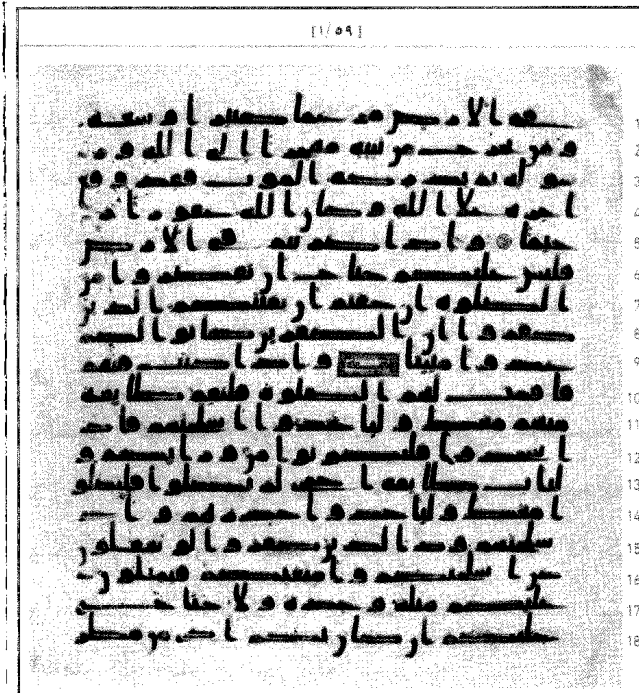 [١/٥٩]
في الارض مرغما كثيرا وسعة
ومن يخرج من بيته مهجرا الى الله ور
سوله ثم يدركه الموت فقد وقع
اجره على الله وكان الله غفورا ر
حيما واذا ضربتم في الارض
فليس عليكم جناح ان تقصروا من
الصلوة ان خفتم ان يفتنكم الذين
كفروا ان الكفرين كانوا لكم
عدوا مبينا واذا كنت فيهم
فاقمت لهم الصلوة فلتقم طائفة
منهم معك ولياخذوا اسلحتهم فاذ
ا سجدوا فليكونوا من ورائكم و
لتات طائفة اخرى لم يصلوا فليصلو
ا معك ولياخذوا حذرهم وا
سلحتهم ود الذين كفروا لو تغفلون
عن اسلحتكم وامتعتكم فيميلون
عليكم ميلة وحدة ولا جناح
عليكم ان كان بكم اذى من مطر